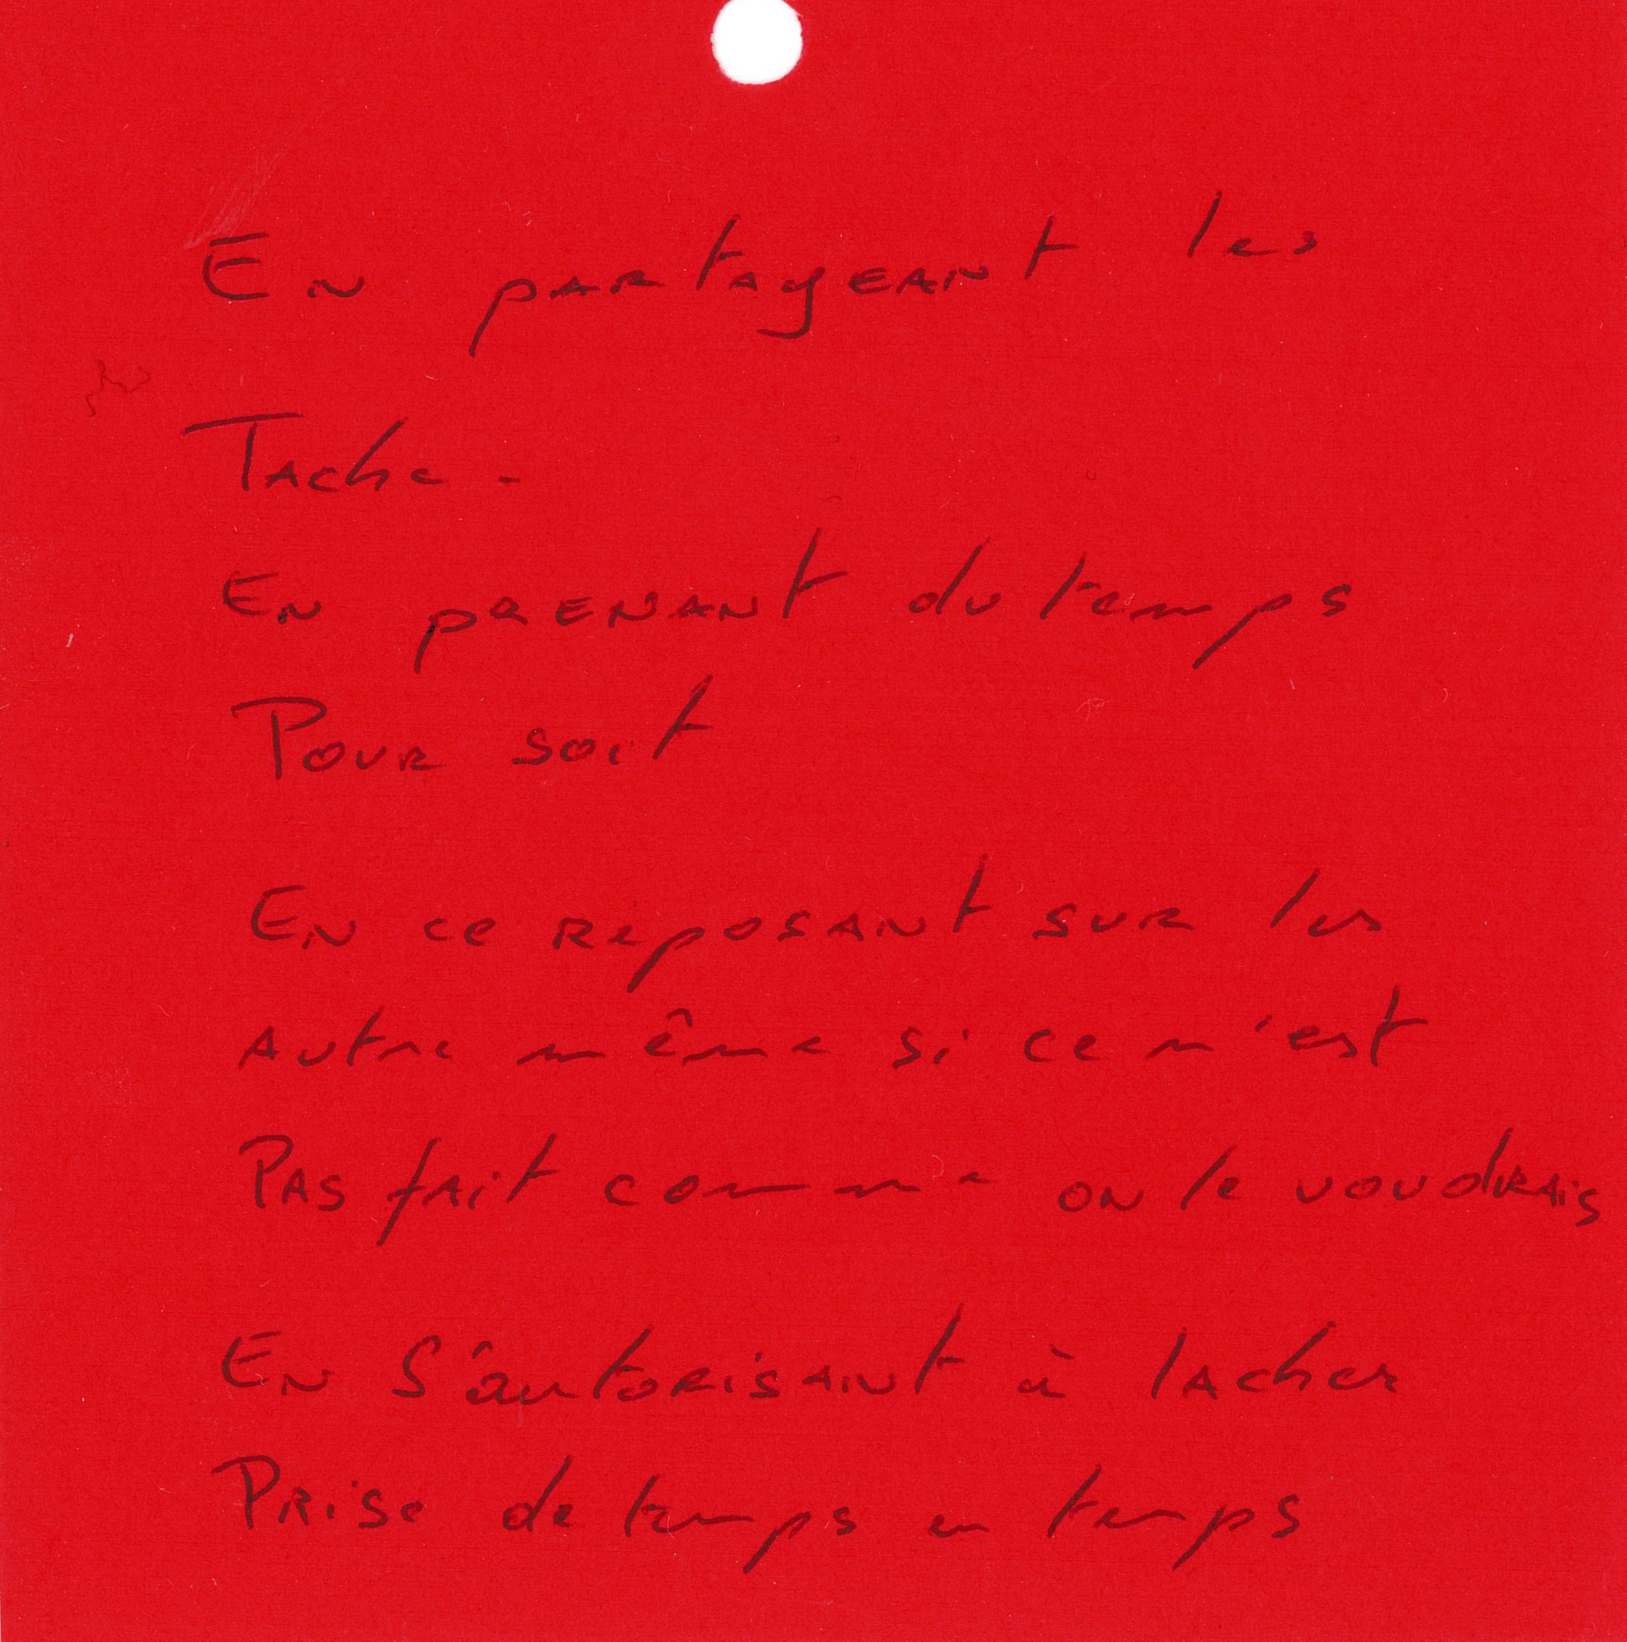 En partageant les
Tache.
En prenant du temps
Pour soit
En ce reposant sur les
autre même si ce n'est
Pas fait comme on le voudrais
En s'autorisant à lacher
Prise de temps en temps